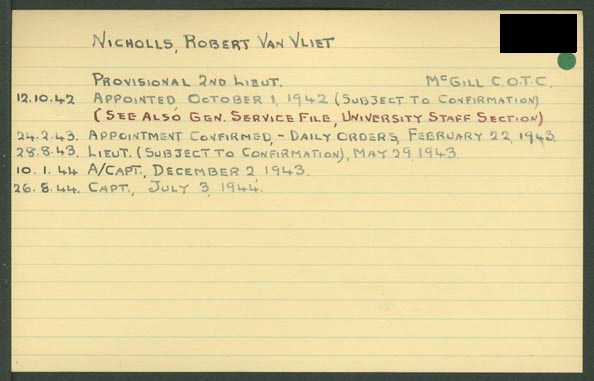 NICHOLLS, ROBERT VAN VLIET
PROVISIONAL 2ND LIEUT. McGILL C.O.T.C.
12.10.42 APPOINTED OCTOBER 1, 1942 (SUBJECT TO CONFIRMATION)
(SEE ALSO GEN. SERVICE FILE, UNIVERSITY STAFF SECTION)
24.2.43. APPOINTMENT CONFIRMED,- DAILY ORDERS, FEBRUARY 22, 1943.
28.8.43. LIEUT. (SUBJECT TO CONFIRMATION), MAY 29, 1943.
10.1.44 A/CAPT., DECEMBER 2, 1943.
26.8.44. CAPT., JULY 3, 1944.